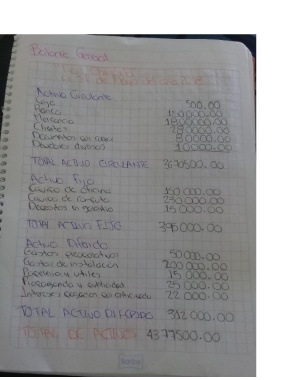 Balance General
Activo Circulante
Caja 500.00
Banco 150000.00
Mercancía
Clientes
Documentos por cobrar
Deudores diversos 10000.00
TOTAL ACTIVO CIRCULANTE 367500.00
Activo Fijo
Equipo de oficina 150 000.00
Equipo de computo 230 000.00
Depositos en garantia 15 000.00
TOTAL ACTIVO FIJO 395 000.00
Activo Diferido
Gastos 50 000.00
Gastos de instalacion 200 000.00
Papeleria y utiles 15 000.00
Propaganda y publicidad 25 000.00
Intereses pagados por anticipado 22 000.00
TOTAL ACTIVO DIFERIDO 312 000.00
TOTAL DE ACTIVOS 4377500.00